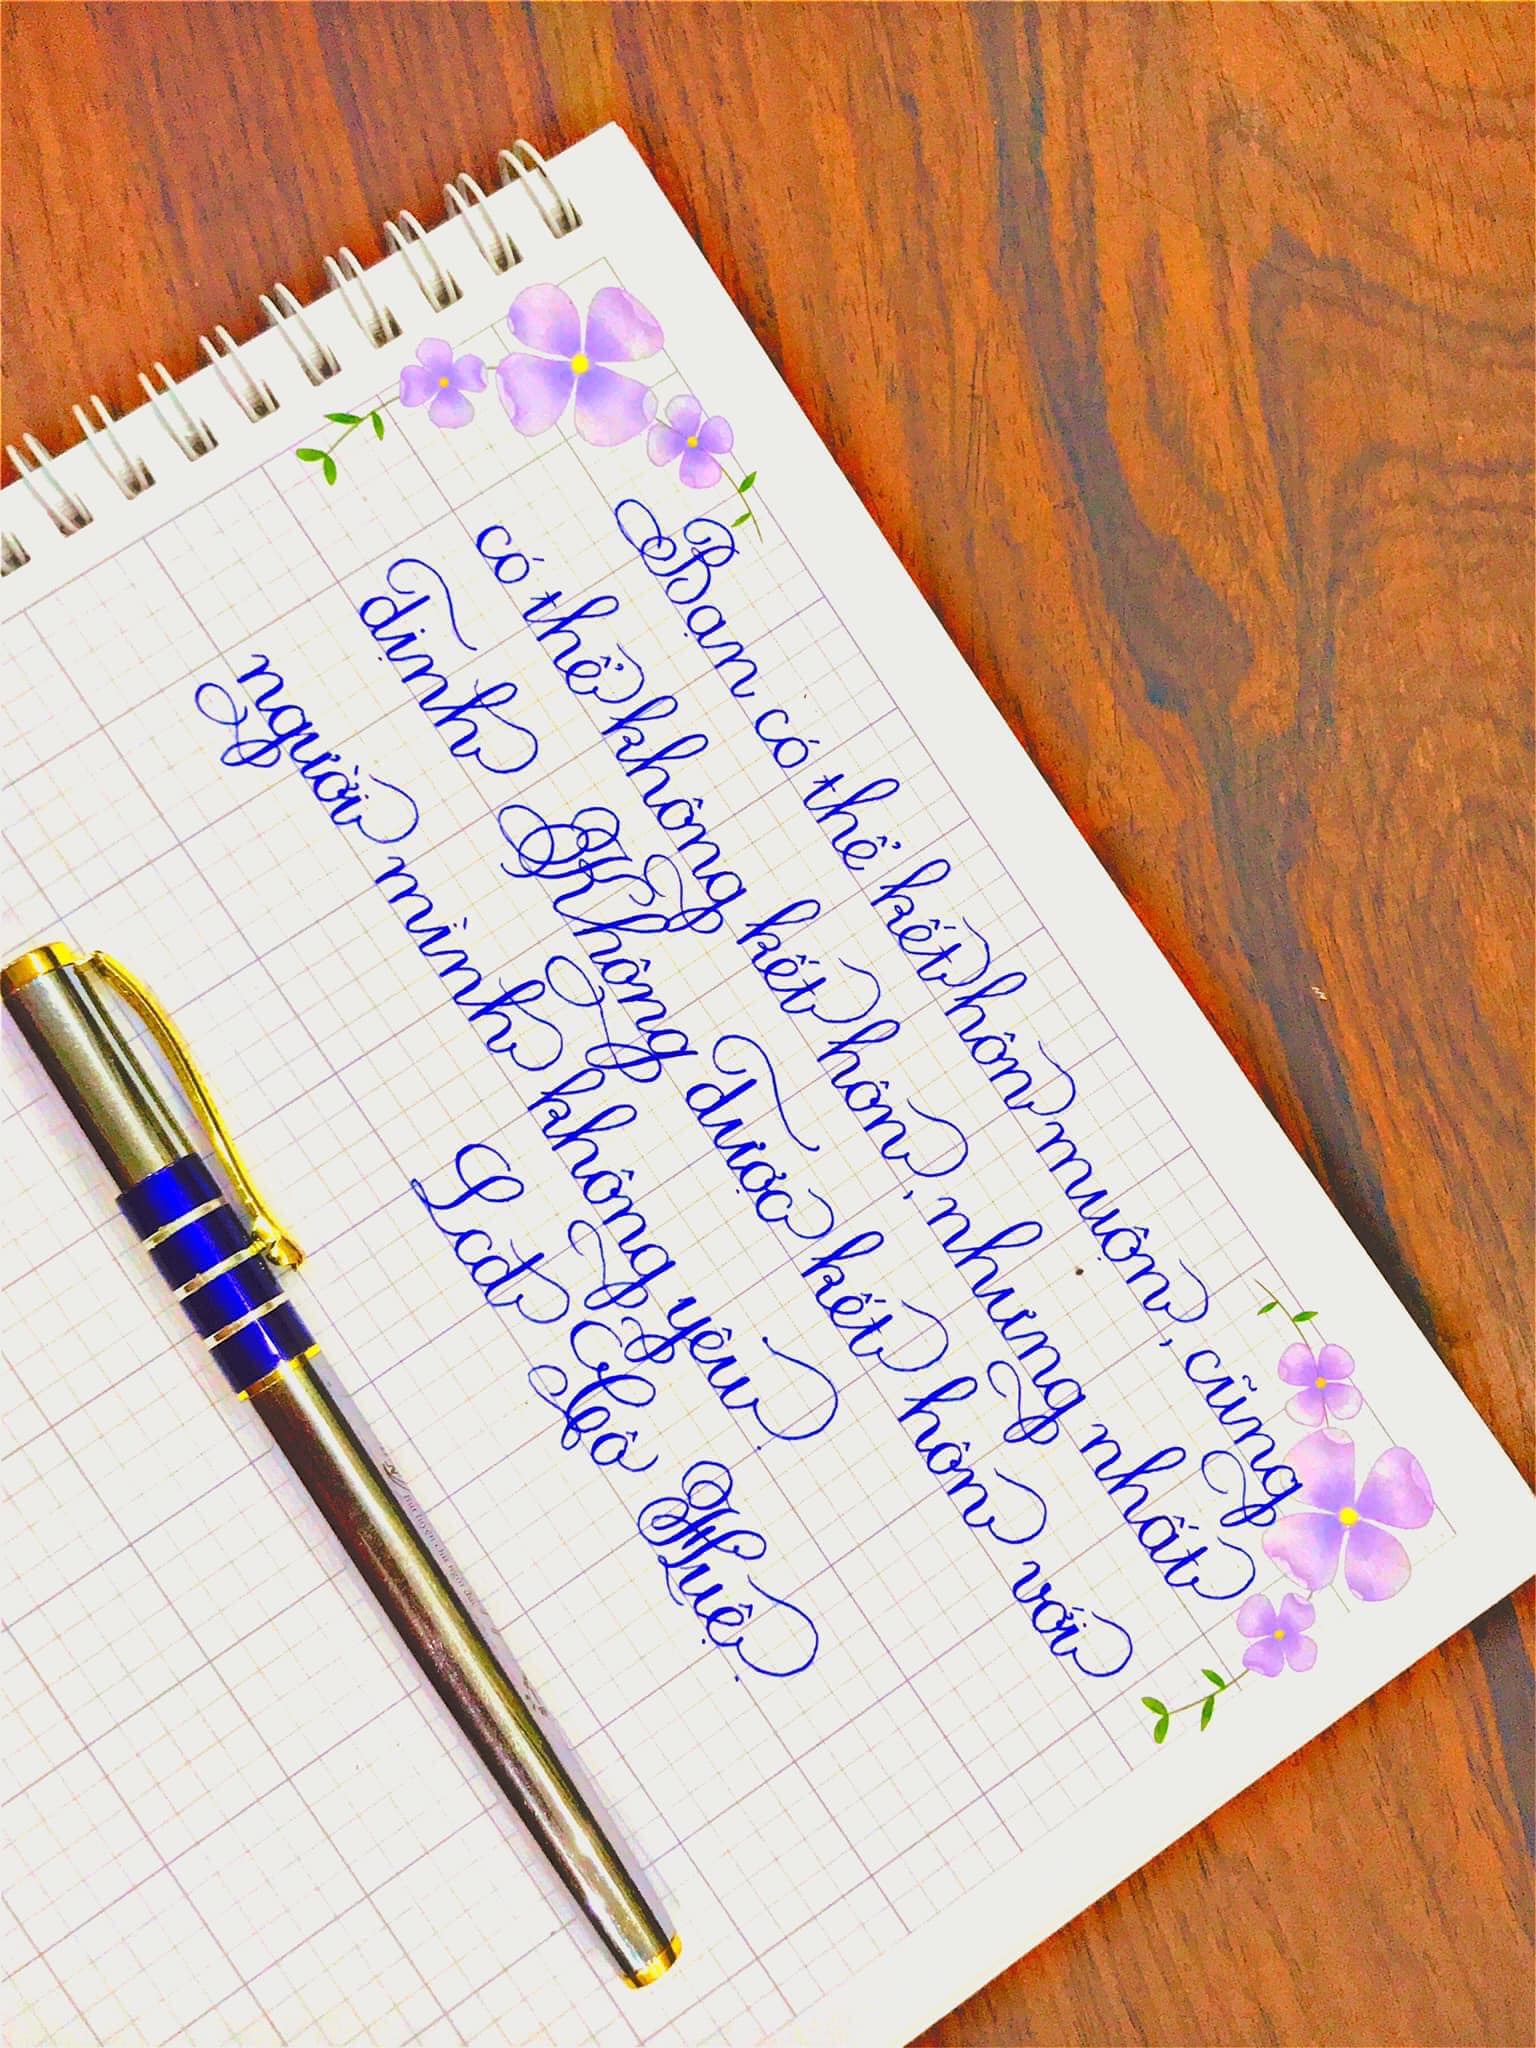 Bạn có thể kết hôn muộn, cũng
có thể không kết hôn, nhưng nhất
định Không được kết hôn với
người mình không yêu.
Lcđ Hồ Huệ.